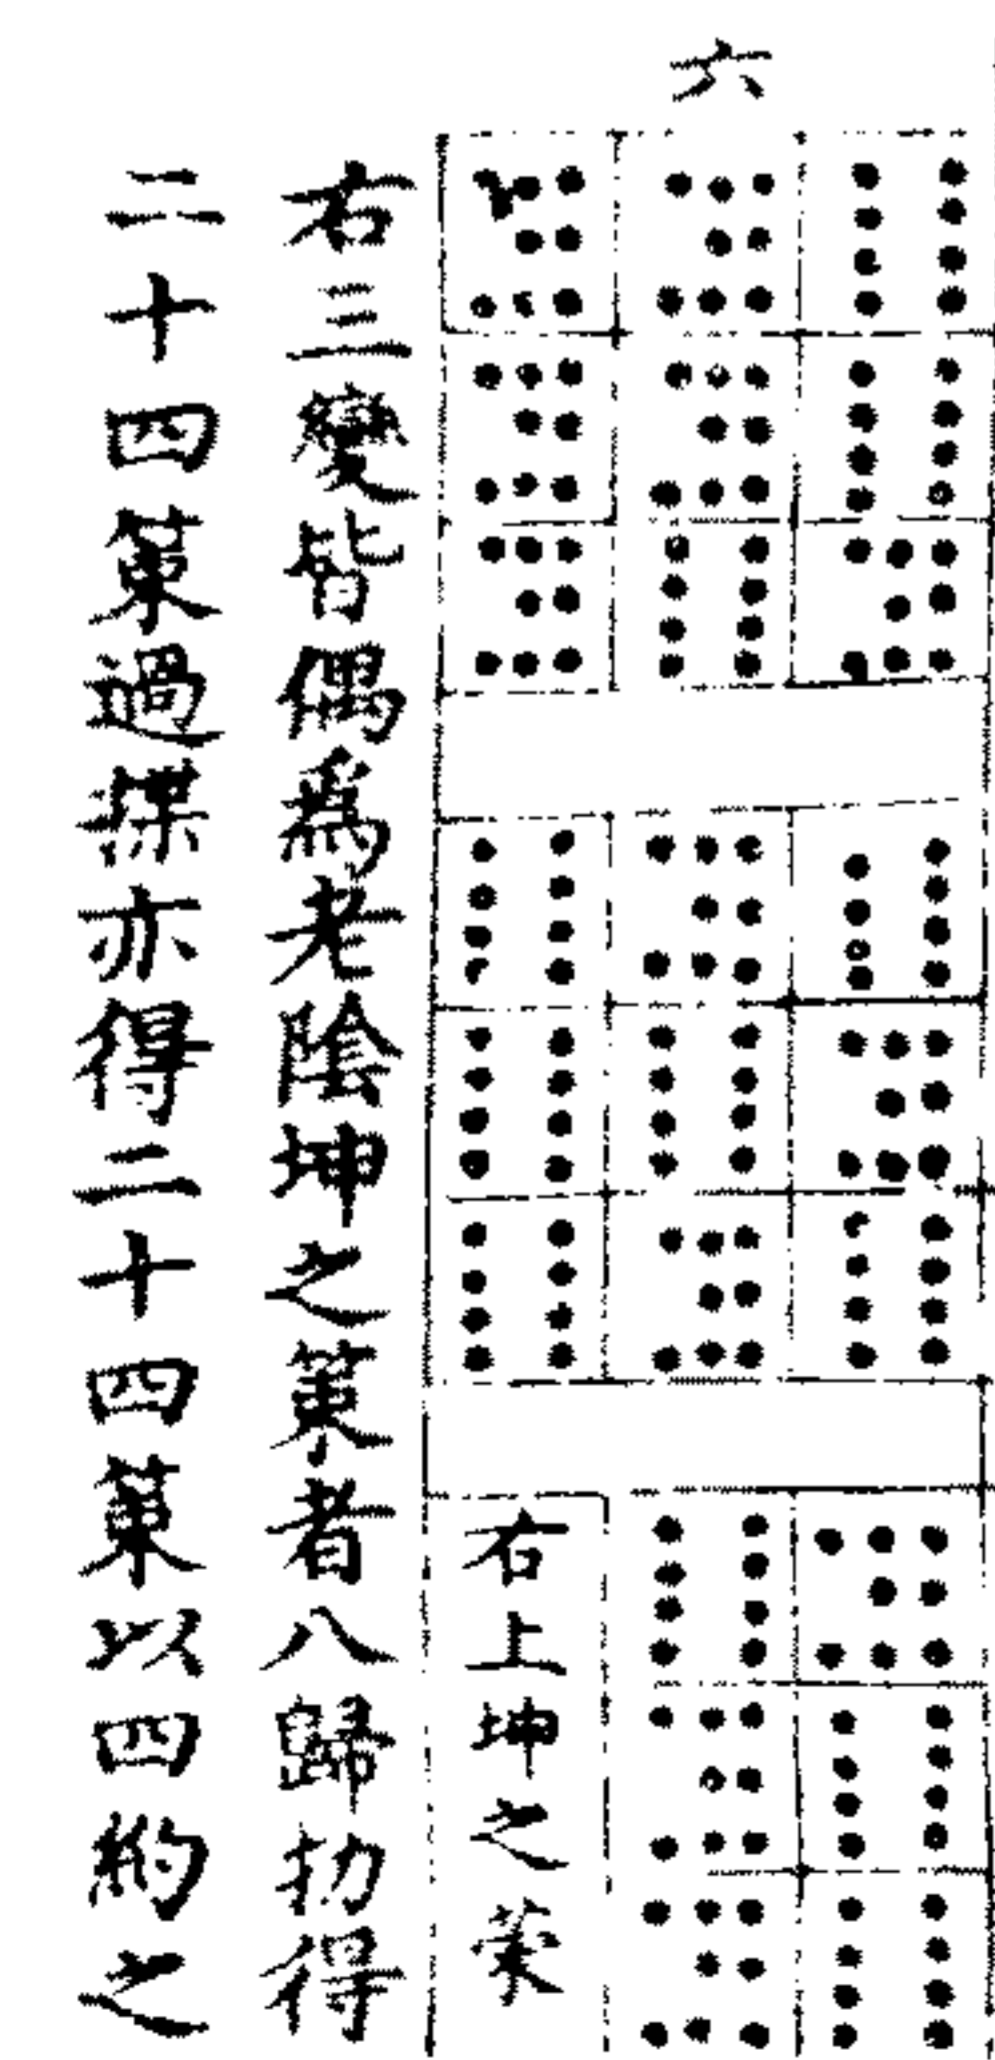 六
右上坤之策
右三變皆偶為老陰坤之策者八歸扐得
二十四策過揲亦得二十四策以四約之